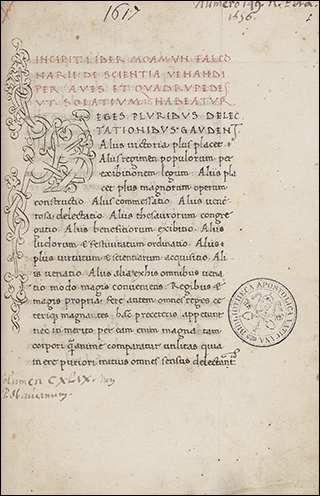 1617
Numero 149. N.
1616. 1
INCIPIT LIBER MOAMIN FALCO
NARII DE SCIENTIA VENANDI
PER AVES ET QUADRUPEDES
VT SOLATIUM HABEATUR
REGES PLURIBUS DELEC
TATIONIBUS GAUDENT
Aliis victoria plus placet
Aliis regimen populorum per
exibitionem legum. Aliis pla
cet plus magnorum operum
constructio. Aliis commessatio. Aliis vene
rosa delectatio. Aliis thesaurorum congre
gatio. Aliis beneficiorum exibitio. Aliis
ludorum, & festiuitatum ordinatio. Aliis
plus virtutum & scientiarum acquisitio. Ali
is venatio. Aliis alia ex his omnibus vena
tio modo magis convenit. Regibus &
magis propria. fere autem omnes reges ce
teriq. magnates. hac pre ceteris appetunt
nec inmerito per eam enim magna tam
corpori quam anime comparatur utilitas quia
in ere puriori mitius omnes sensus delectantur
Volumen CXLIX. non
BIBLIOTHECA APOSTOLICA VATICANA